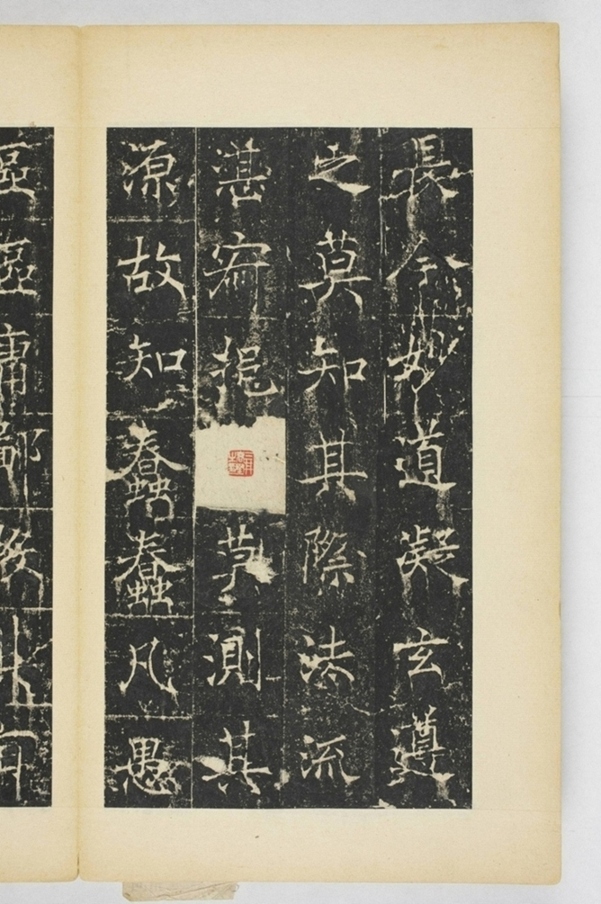 長今妙道凝玄遵
之莫知其際法流
湛寂挹莫測其
源故知蠢蠢凡愚
區區庸鄙